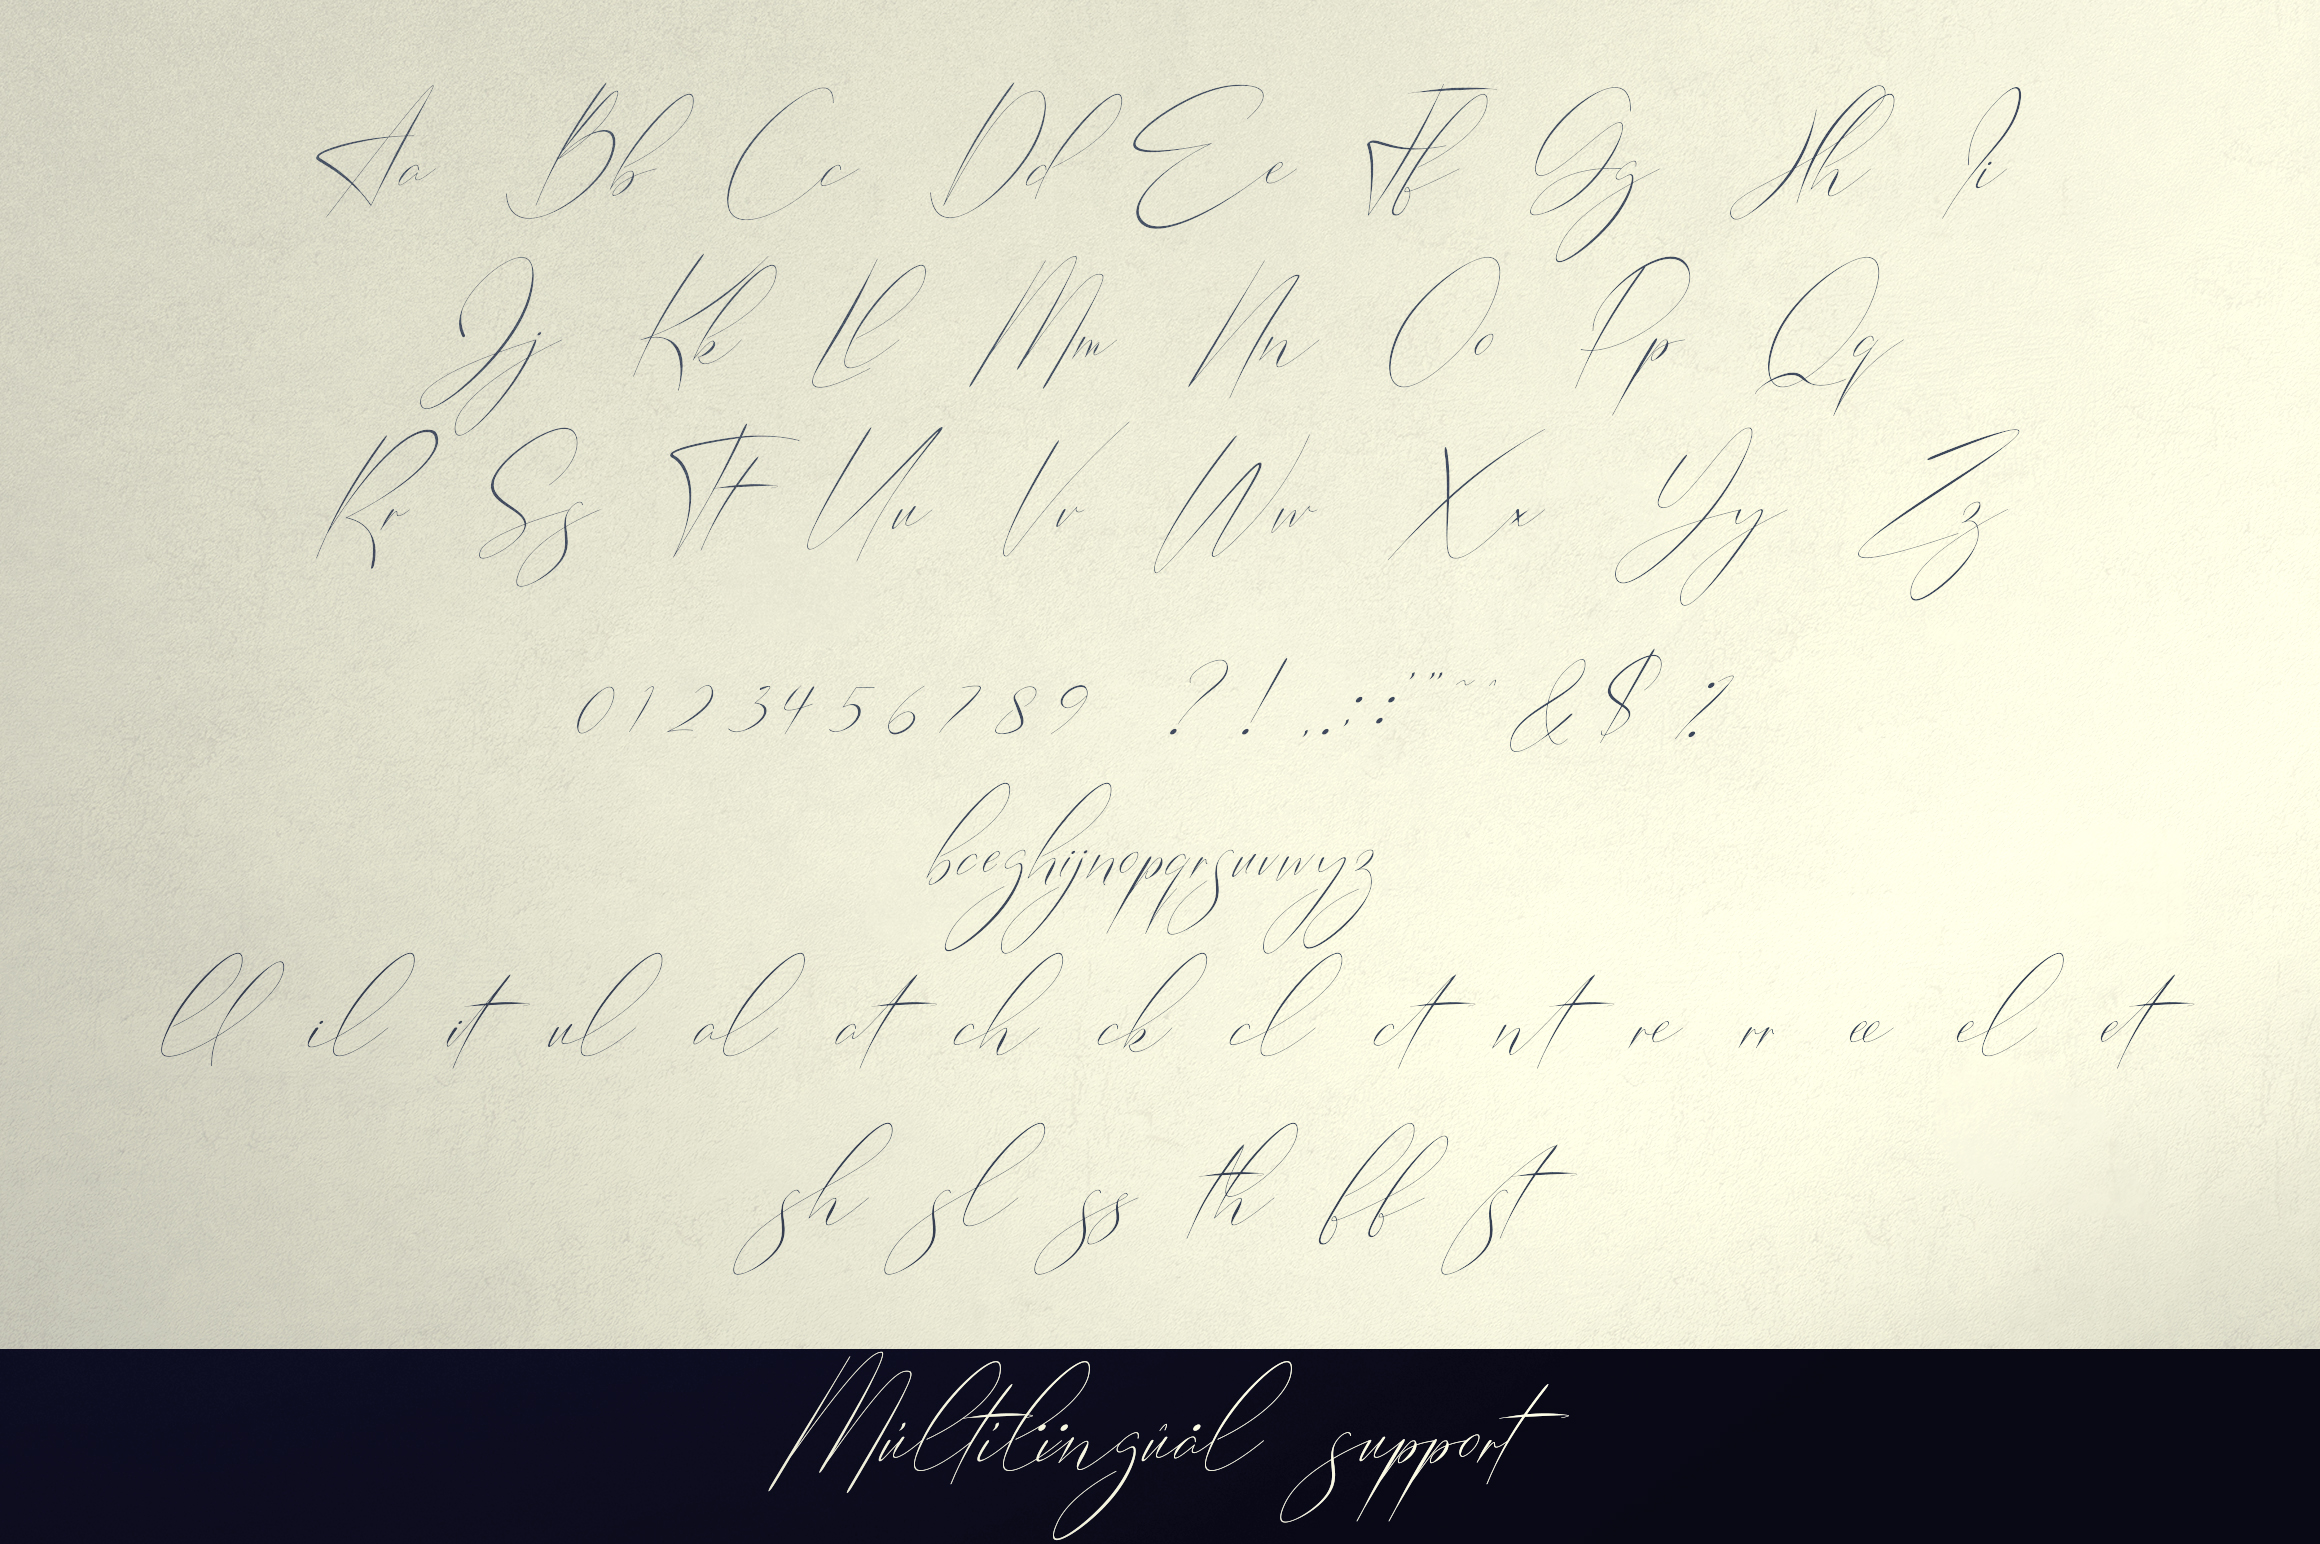 Aa Bb Cc Dd Ee Ff Gg Hh Ii
Jj Kk Ll Mm Nn Oo Pp Qq
Rr Ss Tt Uu Vv Ww Xx Yy Zz
0 1 2 3 4 5 6 7 8 9 ? ! , . ; : ' " ~ ^ & $ %
bceghijnopqrsuvwyz
ll il it ul al at ch ck cl ct nt re rr ee el et
sh sl ss th ff st
Múltílïngûål support